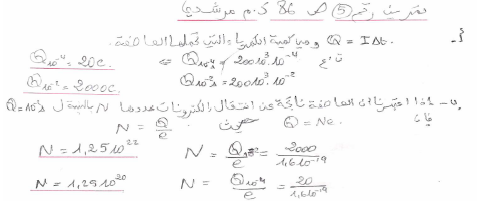 تمرين رقم (5) ص 86 ك.م مرشدي
أ- Q = IΔt. وهي كمية الكهرباء التي تحملها العاصفة.
Q10⁻⁴ = 20c. ⇔ Q10⁻⁴s = 200.10³.10⁻⁴
Q10⁻² = 2000c. Q10⁻²s = 200.10³.10⁻²
ب- إذا اعتبرنا أن العاصفة ناتجة عن انتقال إلكترونات عددها N بالنسبة ل Q=10⁻²s
فإن Q = Ne. حيث N = Q/e
N = 1,25.10²² N = Q10⁻²/e = 2000/1,6.10⁻¹⁹
N = 1,25.10²⁰ N = Q10⁻⁴/e = 20/1,6.10⁻¹⁹